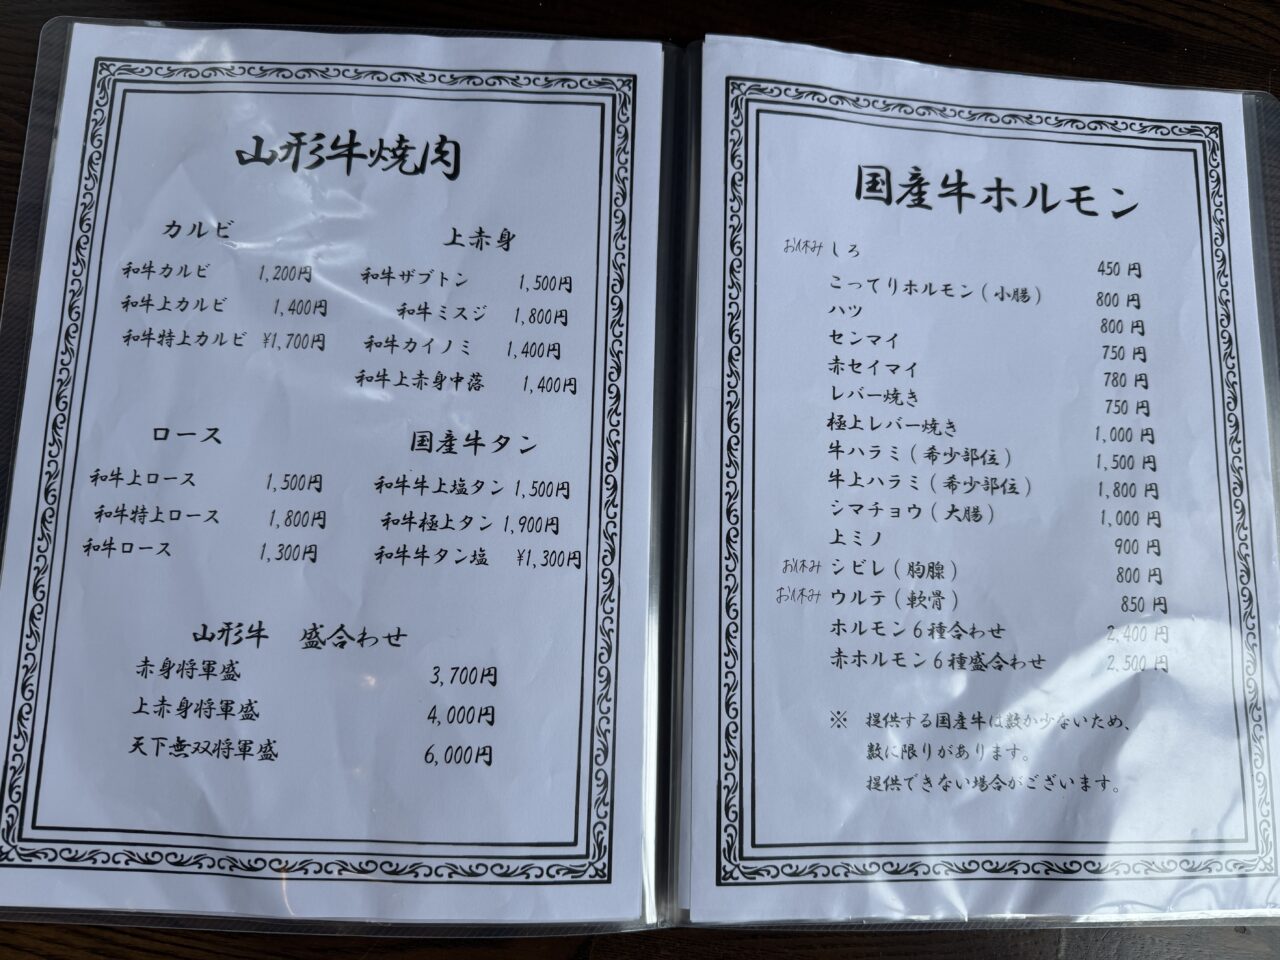 山形牛焼肉
カルビ
和牛カルビ 1,200円
和牛上カルビ 1,400円
和牛特上カルビ ¥1,700円
上赤身
和牛ザブトン 1,500円
和牛ミスジ 1,800円
和牛カイノミ 1,400円
和牛上赤身中落 1,400円
ロース
和牛上ロース 1,500円
和牛特上ロース 1,800円
和牛ロース 1,300円
国産牛タン
和牛牛上塩タン 1,500円
和牛極上タン 1,900円
和牛牛タン塩 ¥1,300円
山形牛 盛合わせ
赤身将軍盛 3,700円
上赤身将軍盛 4,000円
天下無双将軍盛 6,000円
国産牛ホルモン
お休み しろ 450円
こってりホルモン(小腸) 800円
ハツ 800円
センマイ 750円
赤セイマイ 780円
レバー焼き 750円
極上レバー焼き 1,000円
牛ハラミ(希少部位) 1,500円
牛上ハラミ(希少部位) 1,800円
シマチョウ(大腸) 1,000円
上ミノ 900円
お休み シビレ(胸腺) 800円
お休み ウルテ(軟骨) 850円
ホルモン6種合わせ 2,400円
赤ホルモン6種盛合わせ 2,500円
※ 提供する国産牛は数か少ないため、
数に限りがあります。
提供できない場合がございます。